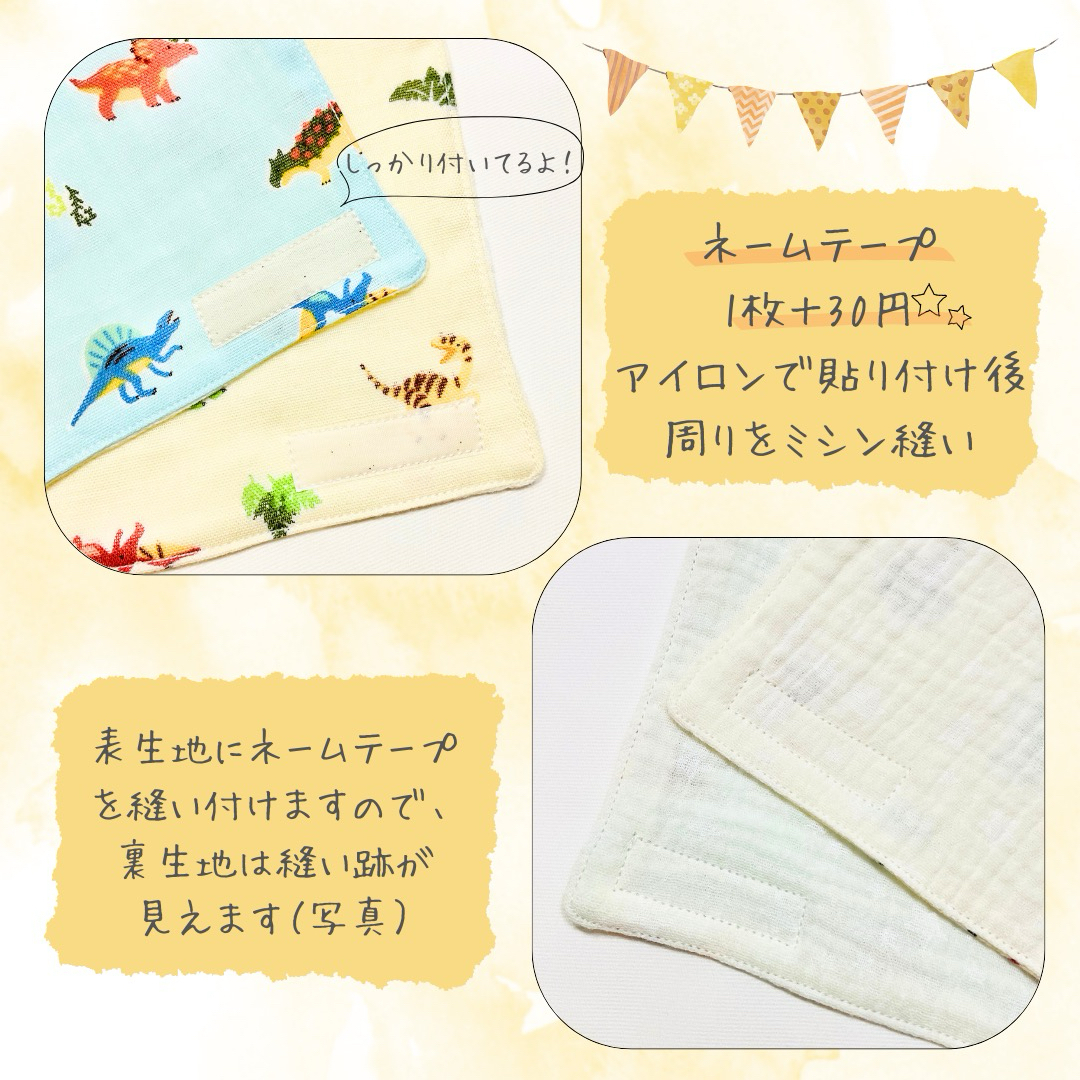 じっかり付いてるよ!
ネームテープ
1枚+30円
アイロンで貼り付け後
周りをミシン縫い
表生地にネームテープ
を縫い付けますので、
裏生地は縫い跡が
見えます(写真)